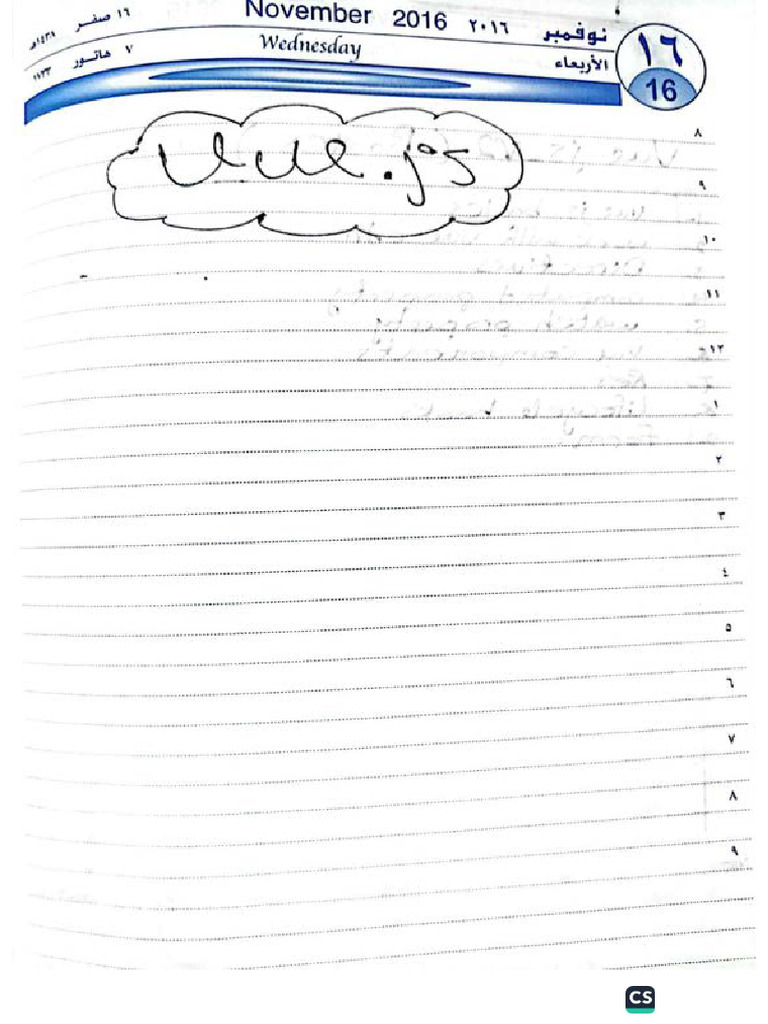 November 2016 ٢٠١٦ نوفمبر
Wednesday الأربعاء
١٦ صفر ١٤٣٨هـ
٧ هاتور ١٧٣٣
١٦
16
Vue.js
٨
٩
١٠
١١
١٢
١
٢
٣
٤
٥
٦
٧
٨
٩
CS